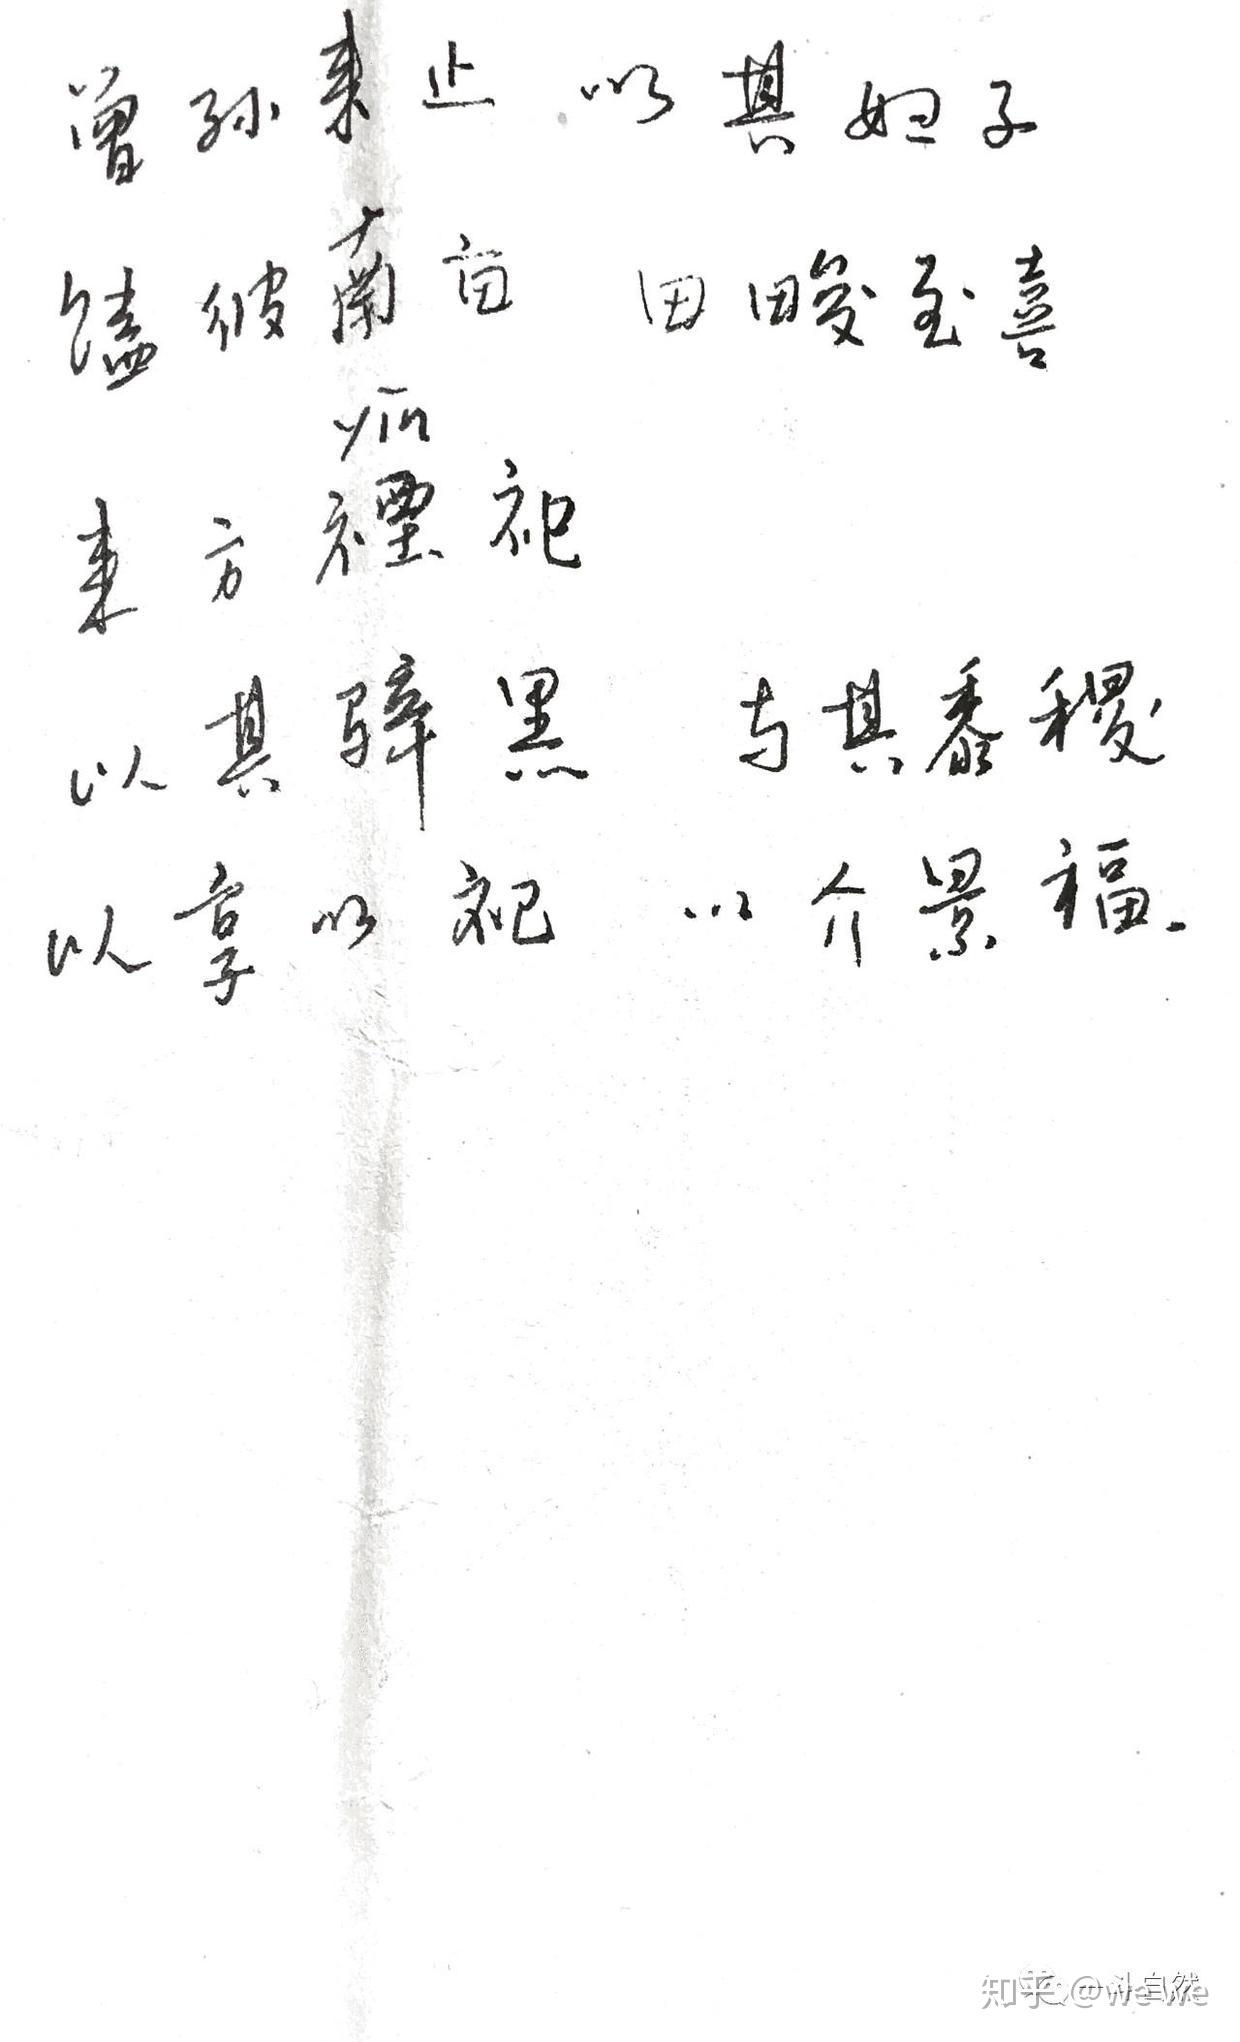 曾孙来止 以其妇子
馌彼南亩 田畯至喜
yin
来方禋祀
以其骍黑 与其黍稷
以享以祀 以介景福.
知乎 @we we